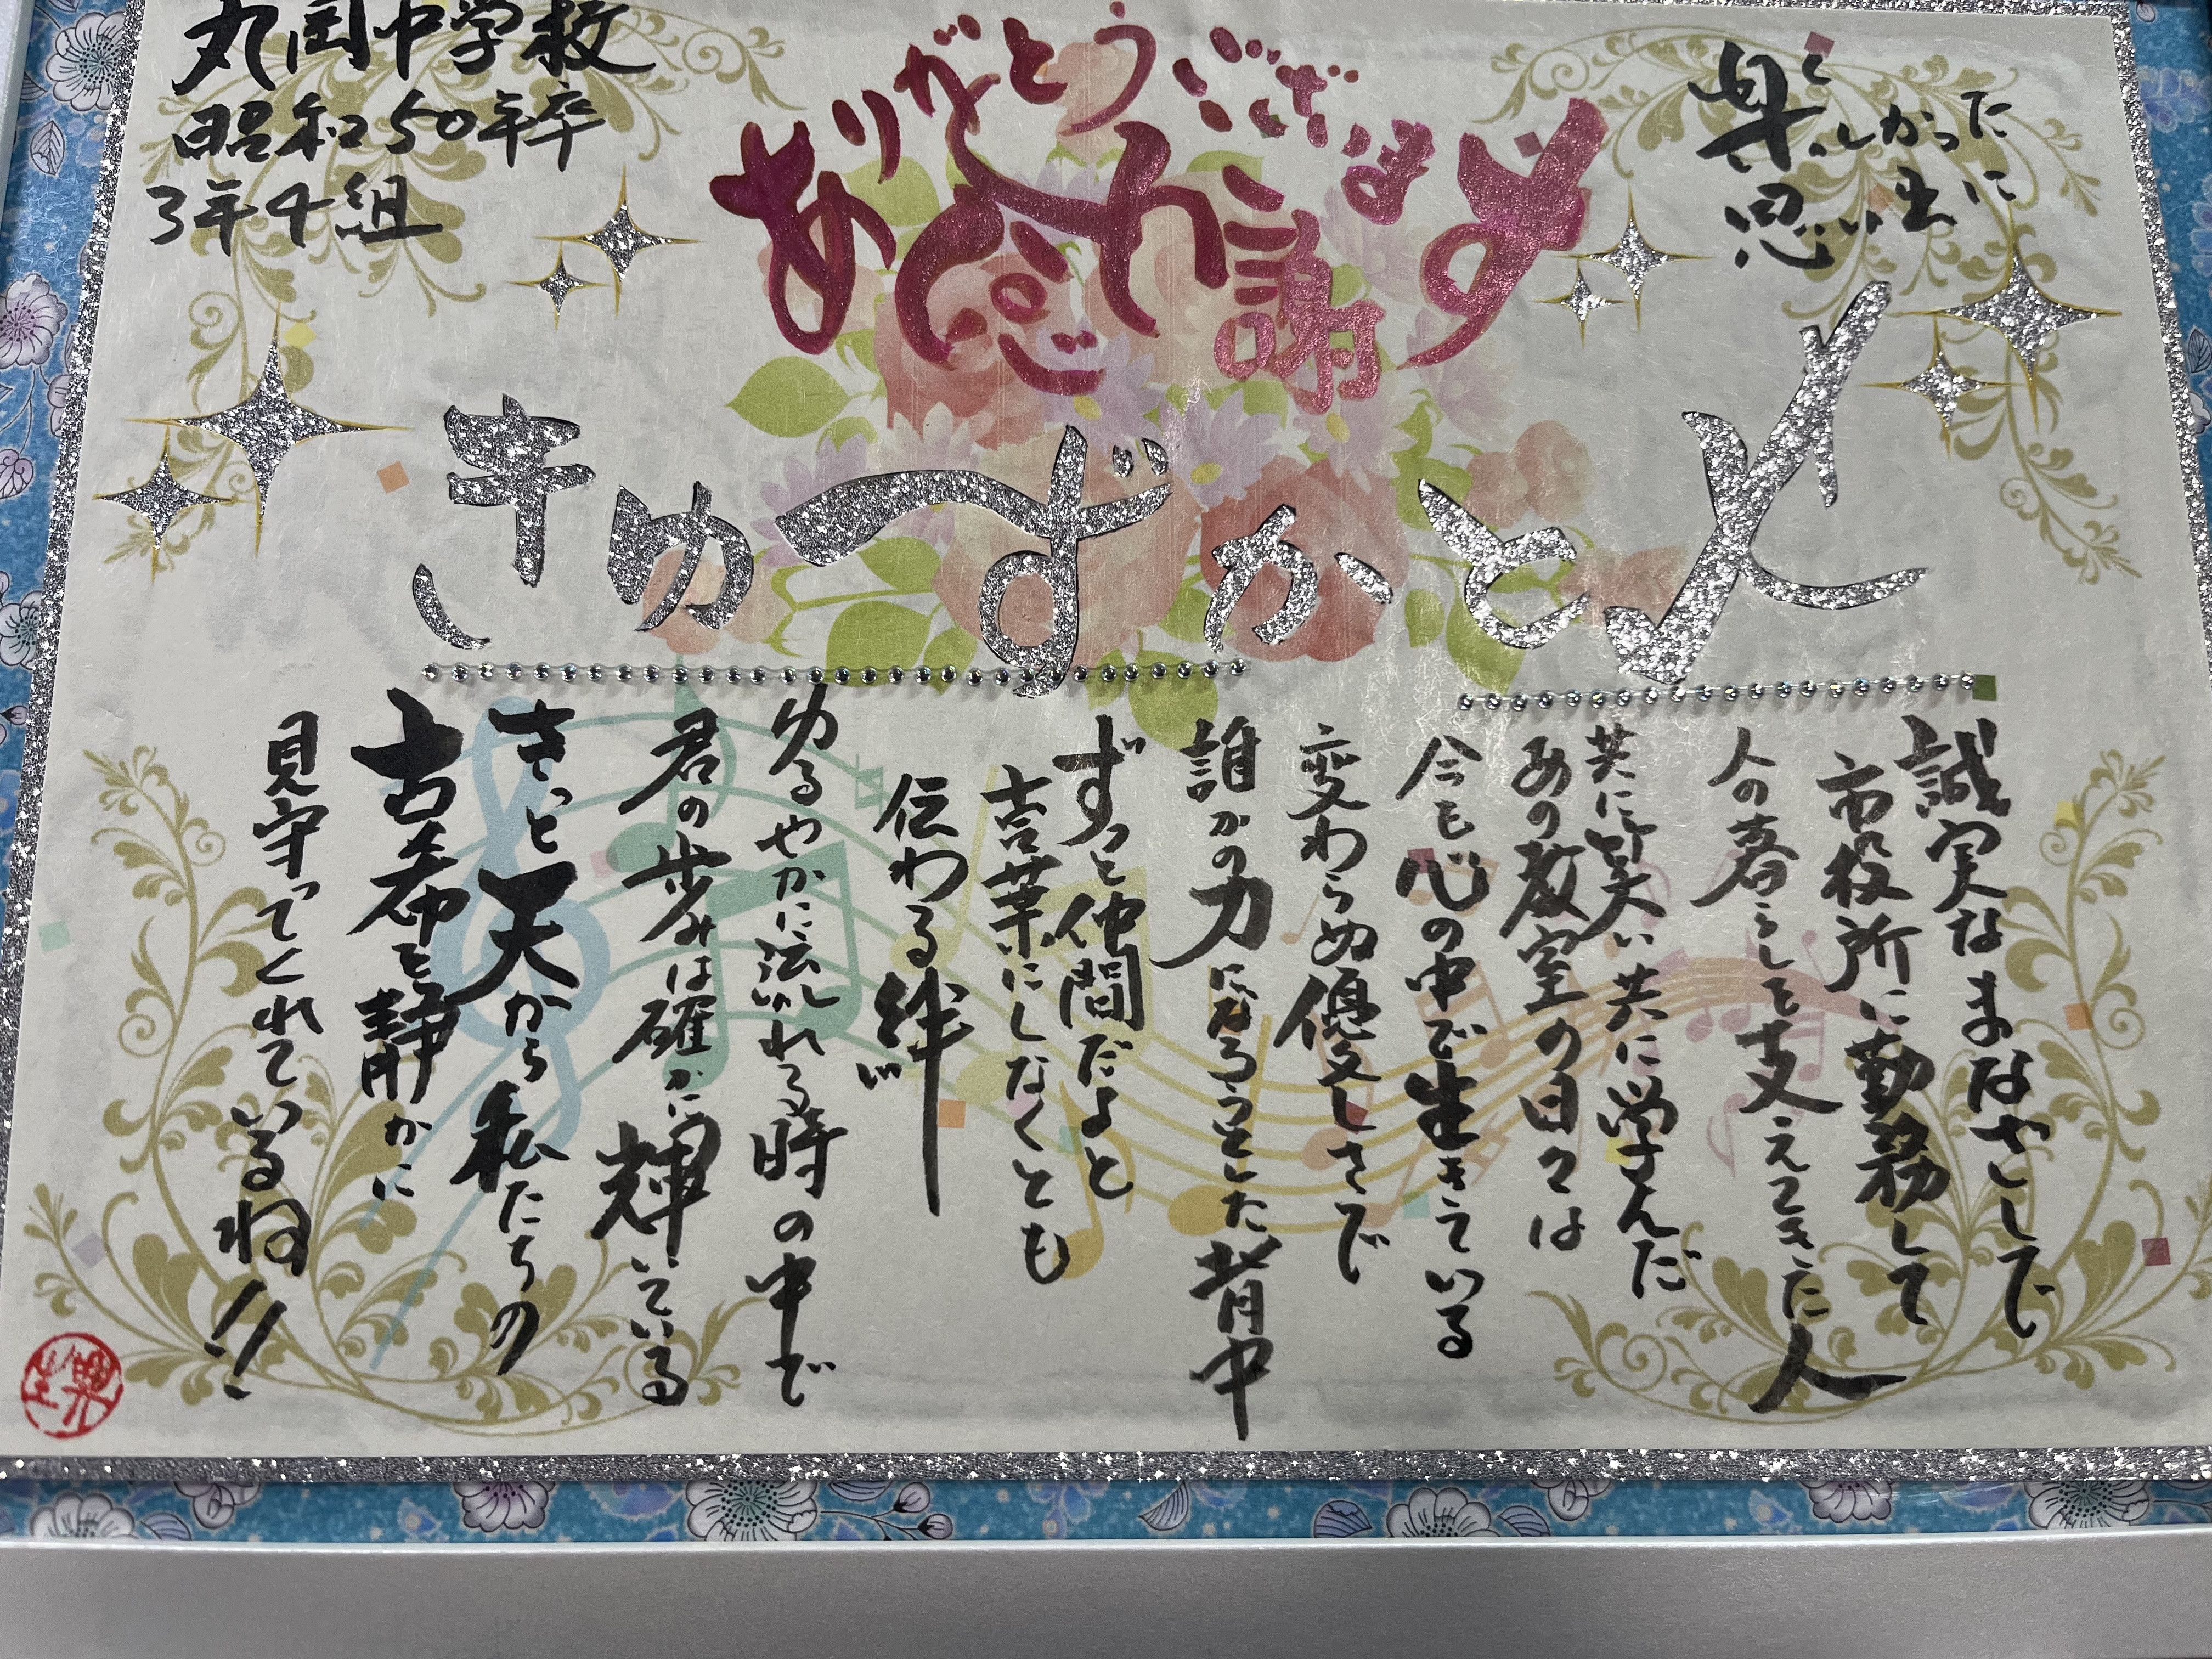 丸岡中学校
昭和50年卒
3年4組
ありがとうございます
感謝
楽しかった
思い出に
せとかずゆき
誠実なまなざしで
市役所に勤務して
人の暮らしを支えてきた人
共に笑い共に学んだ
あの教室の日々は
今も心の中で生きている
変わらぬ優しさで
誰かの力になろうとした背中
ずっと仲間だよと
言葉にしなくとも
伝わる絆
ゆるやかに流れる時の中で
君の歩みは確かに輝いている
きっと天から私たちの
古希を静かに
見守ってくれているね!!